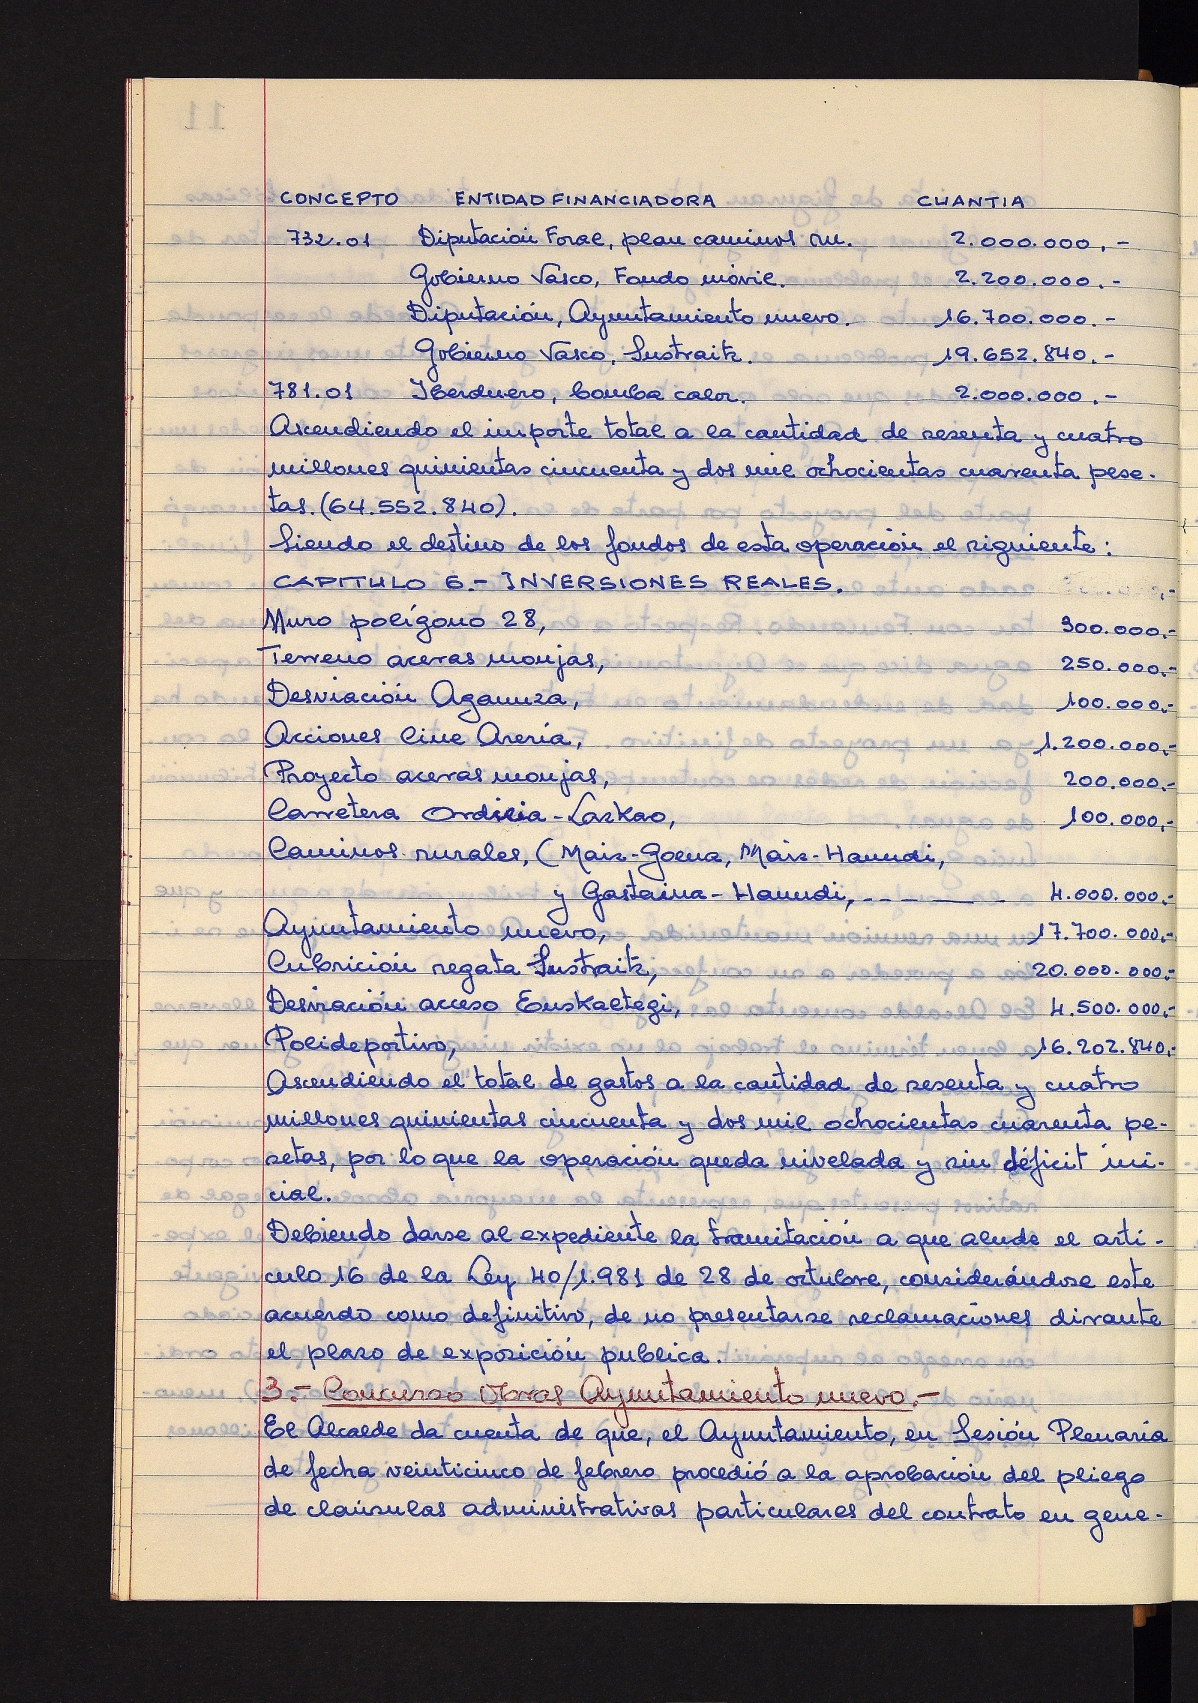 CONCEPTO ENTIDAD FINANCIADORA CUANTIA
732.01 Diputación Foral, plan caminos ru. 2.000.000,-
Gobierno Vasco, Fondo móvil. 2.200.000.-
Diputación, Ayuntamiento nuevo. 16.700.000.-
Gobierno Vasco, Sustraitz. 19.652.840.-
781.01 Iberduero, bomba calor. 2.000.000.-
Ascendiendo el importe total a la cantidad de sesenta y cuatro
millones quinientas cincuenta y dos mil ochocientas cuarenta pese-
tas. (64.552.840).
Siendo el destino de los fondos de esta operación el siguiente:
CAPITULO 6.- INVERSIONES REALES.
Muro polígono 28, 300.000,-
Terreno aceras monjas, 250.000,-
Desviación Agaunza, 100.000,-
Acciones Cine Areria, 1.200.000,-
Proyecto aceras monjas, 200.000,-
Carretera Ordizia-Lazkao, 100.000,-
Caminos rurales, (Maiz-Goena, Maiz-Haundi,
y Gastaina-Haundi, 4.000.000,-
Ayuntamiento nuevo, 17.700.000,-
Cubrición regata Sustraitz, 20.000.000,-
Desviación acceso Euskaltegi, 4.500.000,-
Polideportivo, 16.202.840,-
Ascendiendo el total de gastos a la cantidad de sesenta y cuatro
millones quinientas cincuenta y dos mil ochocientas cuarenta pe-
setas, por lo que la operación queda nivelada y sin déficit ini-
cial.
Debiendo darse al expediente la tramitación a que alude el artí-
culo 16 de la Ley 40/1.981 de 28 de octubre, considerándose este
acuerdo como definitivo, de no presentarse reclamaciones durante
el plazo de exposición publica.
3.- Concurso Obras Ayuntamiento nuevo.-
El Alcalde da cuenta de que, el Ayuntamiento, en Sesión Plenaria
de fecha veinticinco de febrero procedió a la aprobación del pliego
de claúsulas administrativas particulares del contrato en gene-